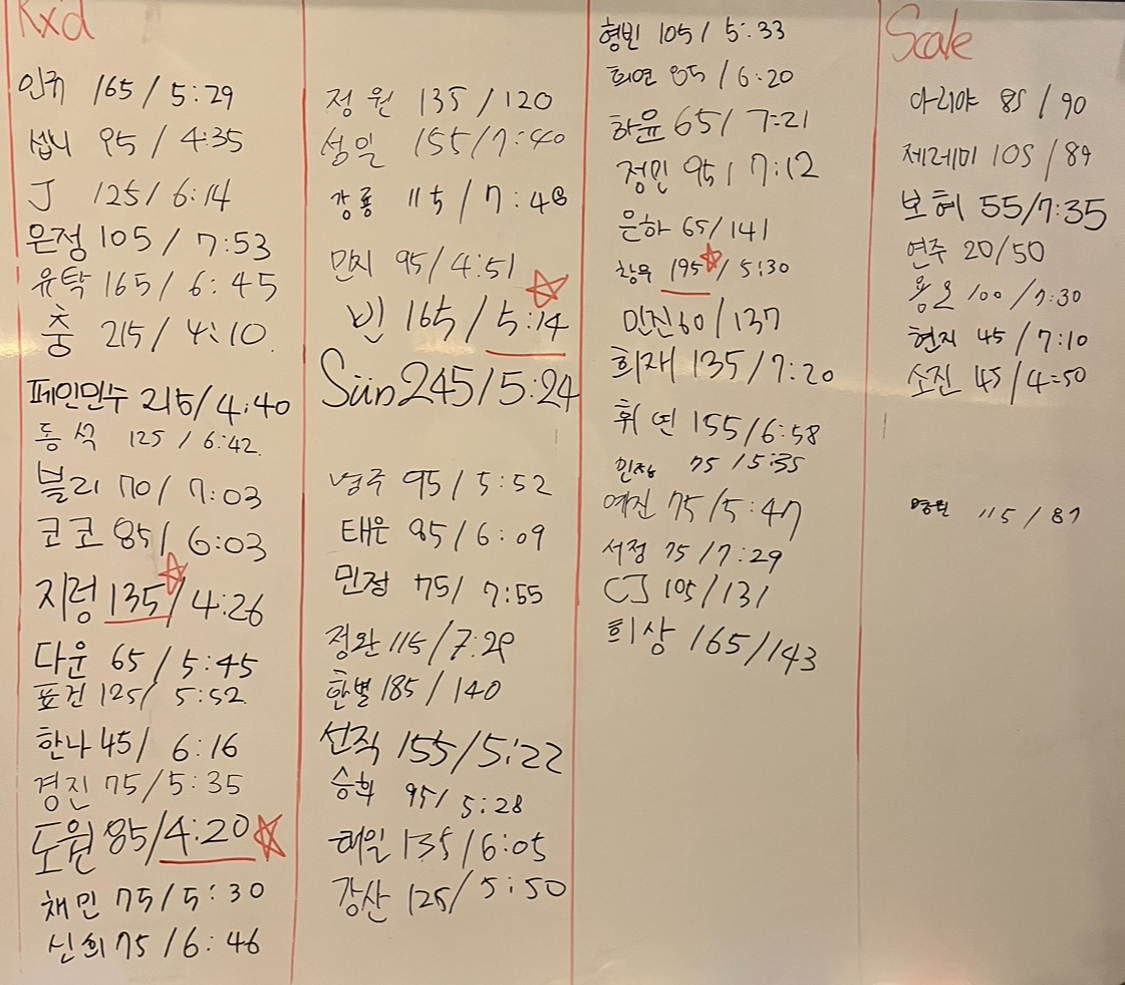 Rx'd
인규 165/5:29
섭니 95/4:35
J 125/6:14
은정 105/7:53
유탁 165/6:45
충 215/4:10
페인민수 215/4:40
동석 125/6:42
블리 70/7:03
코코 85/6:03
지렁 135/4:26
다운 65/5:45
표건 125/5:52
한나 45/6:16
경진 75/5:35
도원 85/4:20
채민 75/5:30
신희 75/6:46
정원 135/120
성일 155/7:40
강룡 115/7:48
민지 95/4:51
빈 165/5:14
Sun 245/5:24
명주 95/5:52
태은 85/6:09
민정 75/7:55
정완 115/7:29
한별 185/140
선직 155/5:22
승희 95/5:28
해일 135/6:05
강산 125/5:50
형빈 105/5:33
희연 85/6:20
하윤 65/7:21
정민 95/7:12
은하 65/141
창우 195/5:30
민진 60/137
희재 135/7:20
휘연 155/6:58
75/5:35
예진 75/5:47
서정 75/7:29
CJ 105/131
희상 165/143
Scale
아리야 85/90
제레미 105/89
보혜 55/7:35
연주 20/50
용오 100/7:30
현지 45/7:10
소진 45/4:50
115/87